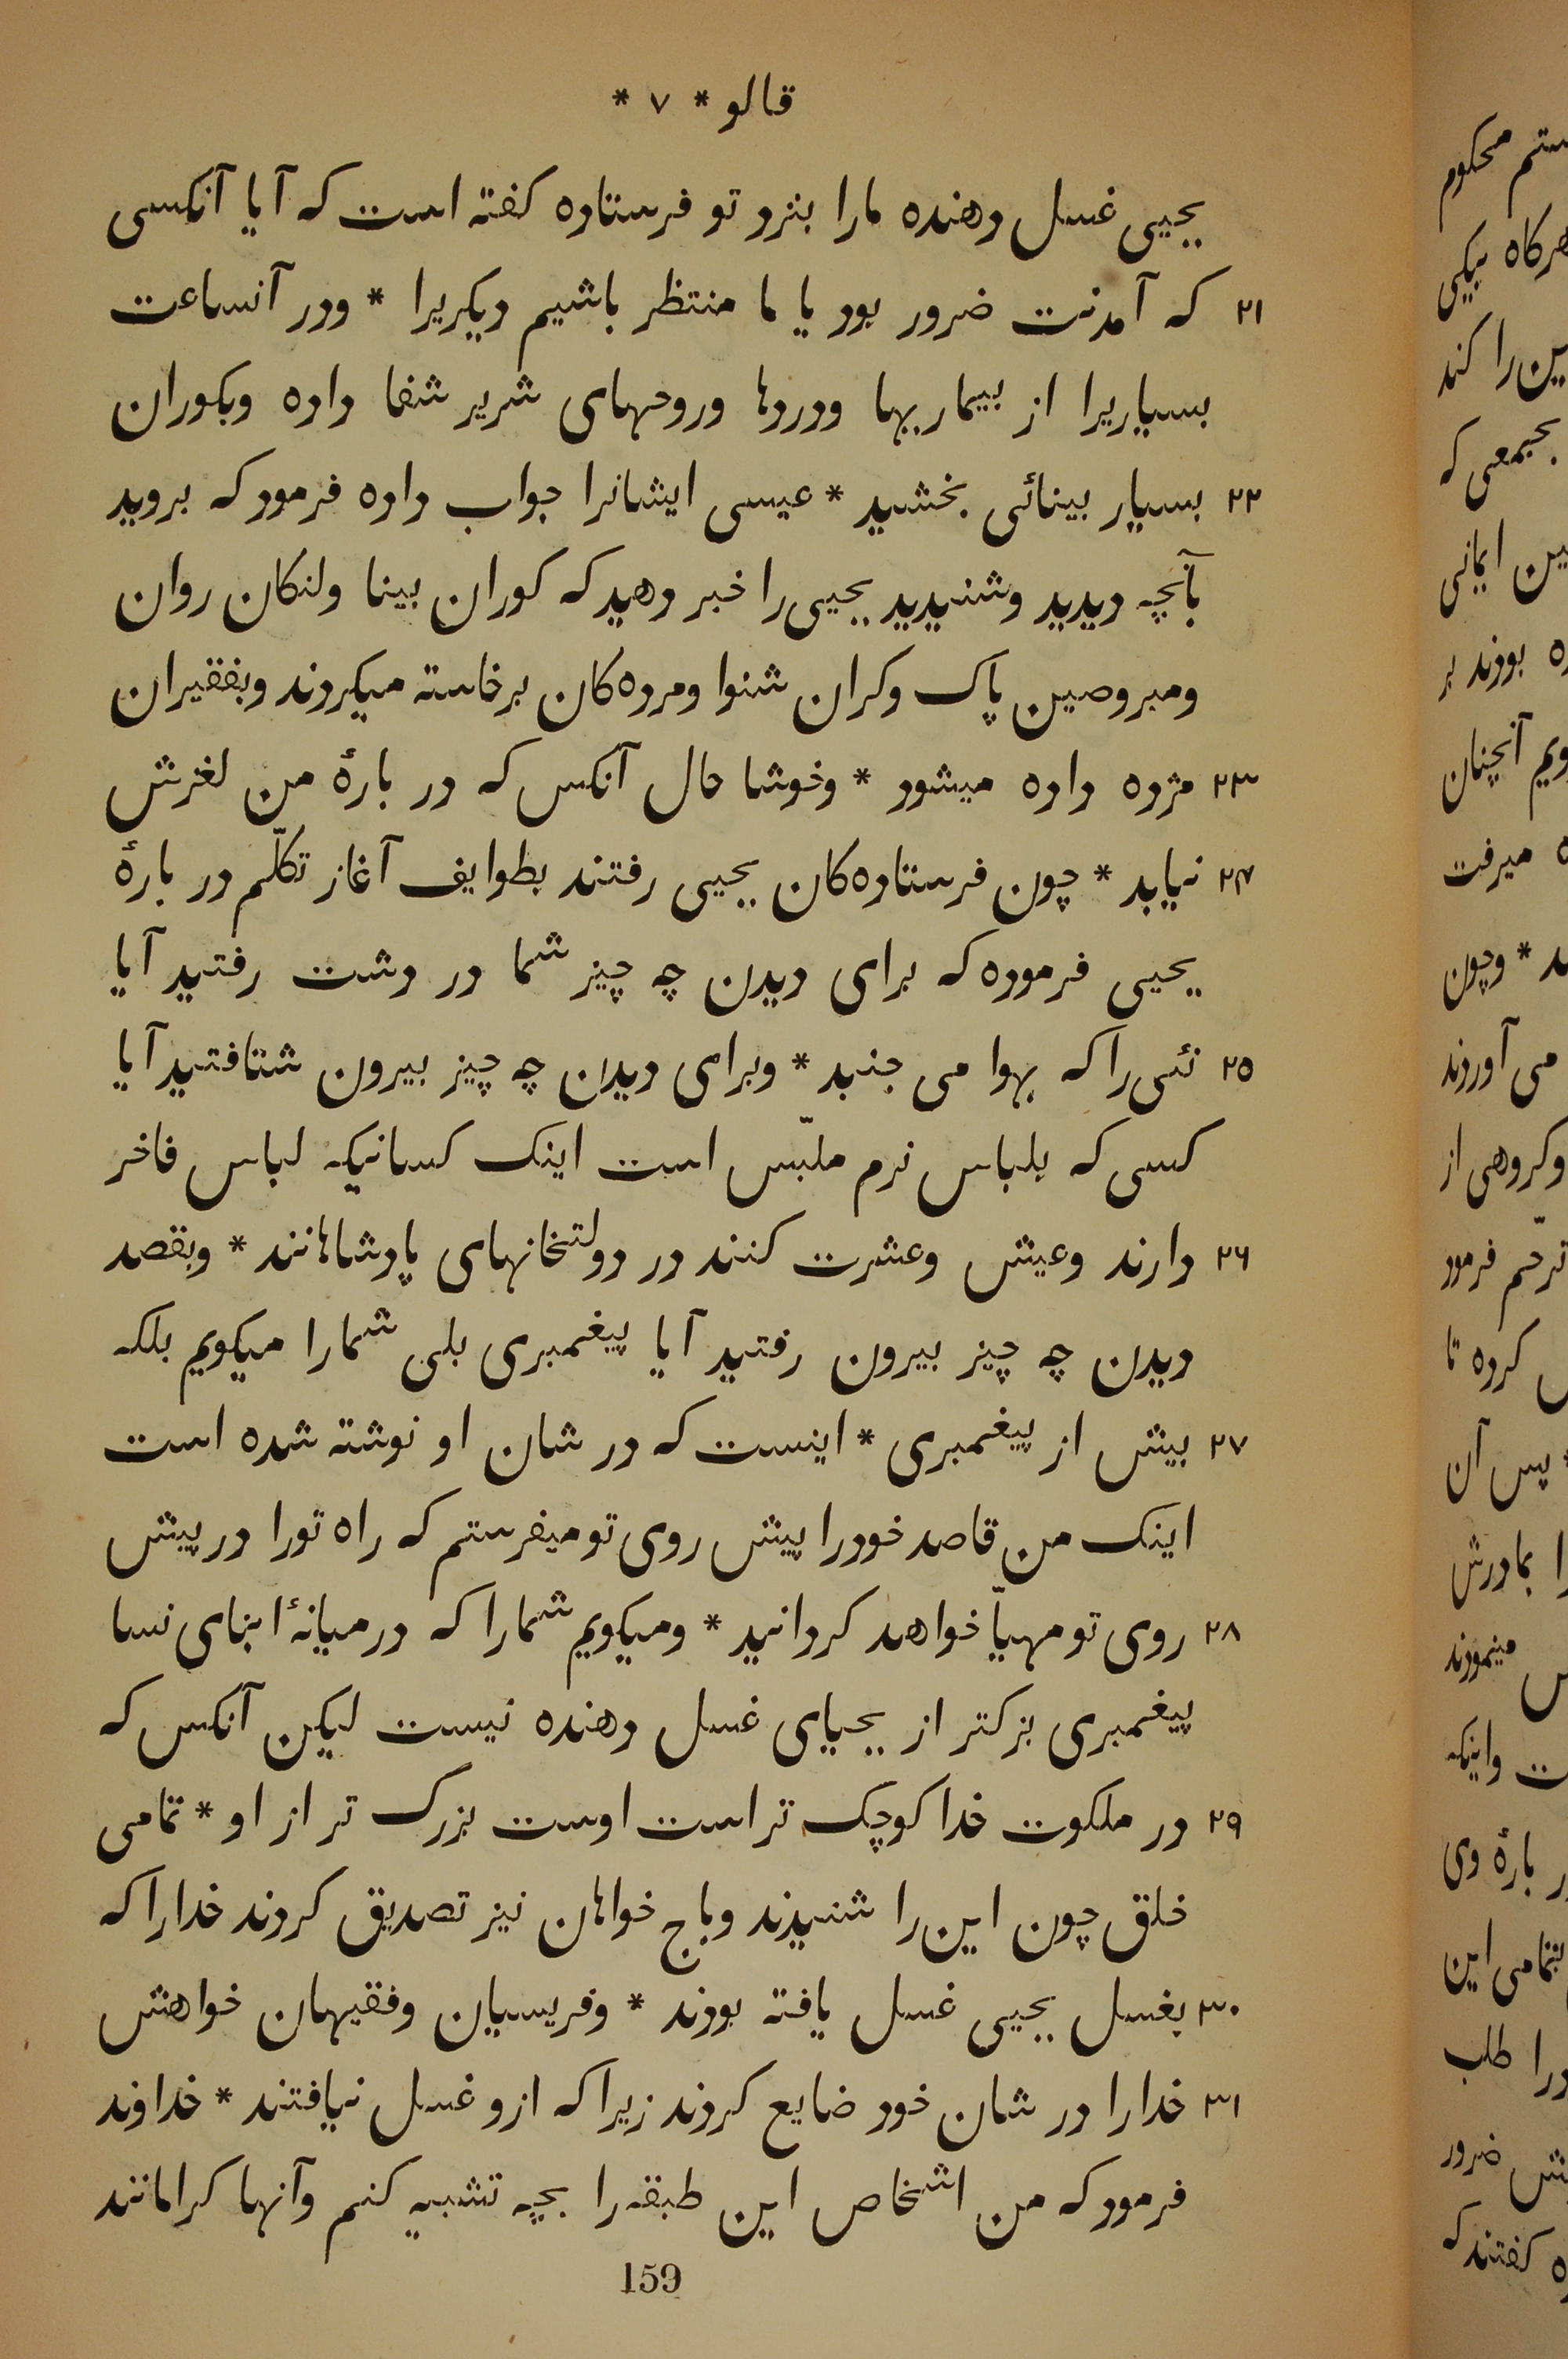 قالو * ۷ *
یحیی غسل دهنده مارا بنزد تو فرستاده کفته است که آیا آنکسی
۲۱ که آمدنت ضرور بود یا ما منتظر باشیم دیکریرا * ودر آنساعت
بسیاریرا از بیماریها ودردها وروحهای شریر شفا داده وبکوران
۲۲ بسیار بینائی بخشید * عیسی ایشانرا جواب داده فرمود که بروید
بآنچه دیدید وشنیدید یحیی را خبر دهید که کوران بینا ولنکان روان
ومبروصین پاک وکران شنوا ومرده‌کان برخاسته میکردند وبفقیران
۲۳ مژده داده میشود * وخوشا حال آنکس که در بارهٔ من لغزش
۲۴ نیابد * چون فرستاده‌کان یحیی رفتند بطوایف آغاز تکلّم در بارهٔ
یحیی فرموده که برای دیدن چه چیز شما در دشت رفتید آیا
۲۵ نئی را که بهوا می جنبد * وبرای دیدن چه چیز بیرون شتافتید آیا
کسی که بلباس نرم ملبّس است اینک کسانیکه لباس فاخر
۲۶ دارند وعیش وعشرت کنند در دولتخانهای پادشاهانند * وبقصد
دیدن چه چیز بیرون رفتید آیا پیغمبری بلی شمارا میکویم بلکه
۲۷ بیش از پیغمبری * اینست که در شان او نوشته شده است
اینک من قاصد خودرا پیش روی تو میفرستم که راه تورا در پیش
۲۸ روی تو مهیّا خواهد کردانید * ومیکویم شمارا که در میانهٔ ابنای نسا
پیغمبری بزرکتر از یحیای غسل دهنده نیست لیکن آنکس که
۲۹ در ملکوت خدا کوچک تر است اوست بزرک تر از او * تمامی
خلق چون این را شنیدند وباج خواهان نیز تصدیق کردند خدارا که
۳۰ بغسل یحیی غسل یافته بودند * وفریسیان وفقیهان خواهش
۳۱ خدارا در شان خود ضایع کردند زیرا که ازو غسل نیافتند * خداوند
فرمود که من اشخاص این طبقه را بچه تشبیه کنم وآنها کرا مانند
159